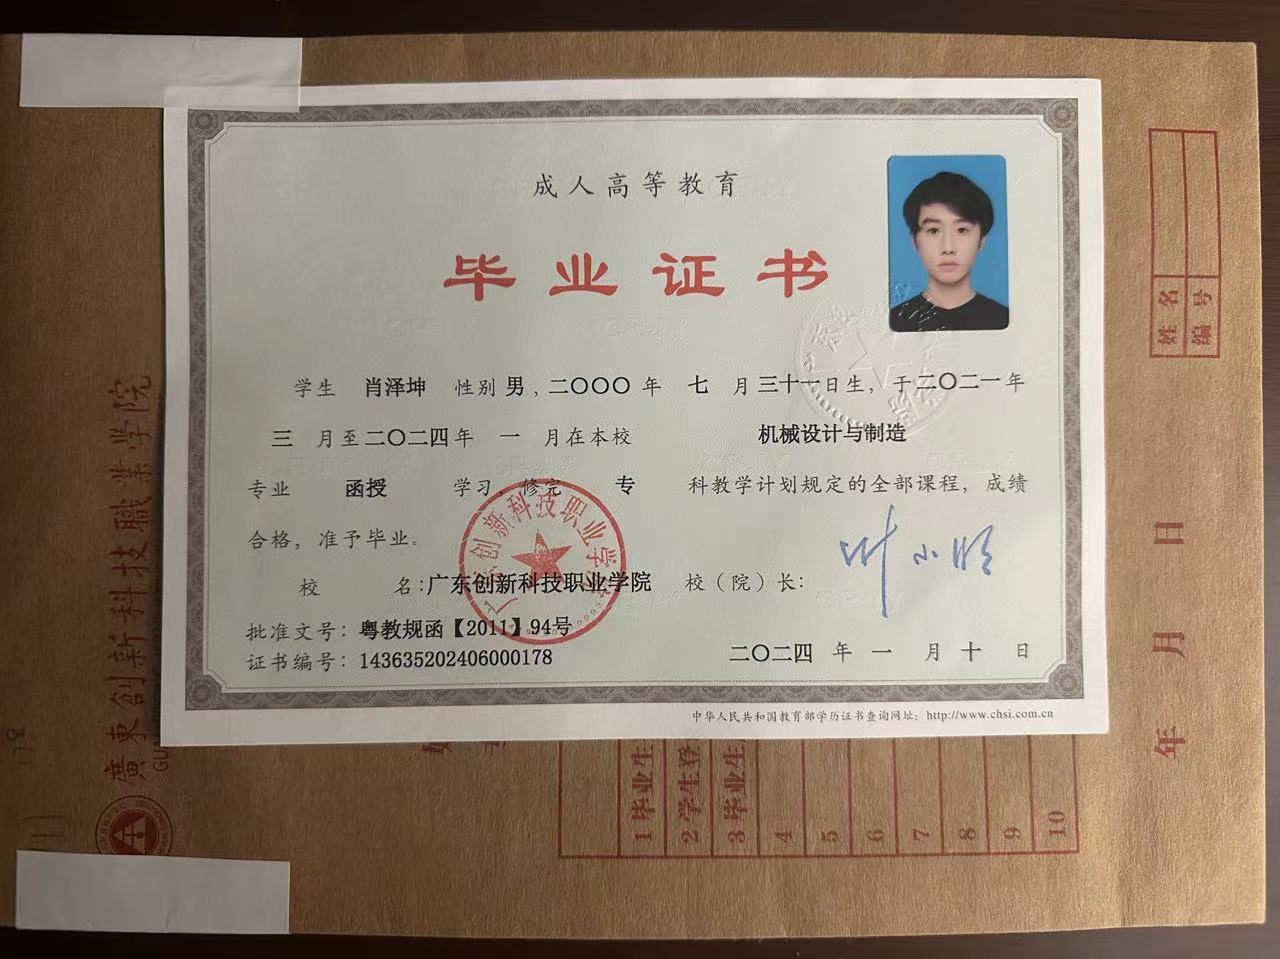 成人高等教育
毕业证书
学生 肖泽坤 性别 男，二〇〇〇年 七 月三十一日生，于二〇二一年
三 月至二〇二四年 一 月在本校 机械设计与制造
专业 函授 学习，修完 专 科教学计划规定的全部课程，成绩
合格，准予毕业。
校 名：广东创新科技职业学院 校（院）长：
批准文号：粤教规函【2011】94号
证书编号：143635202406000178 二〇二四 年 一 月 十 日
中华人民共和国教育部学历证书查询网址：http://www.chsi.com.cn
广东创新科技职业学院
廣東創新科技職業学院
GU
姓名
编号
年 月 日
1 毕业生
2 学生登
3 毕业生
4
5
6
7
8
9
10